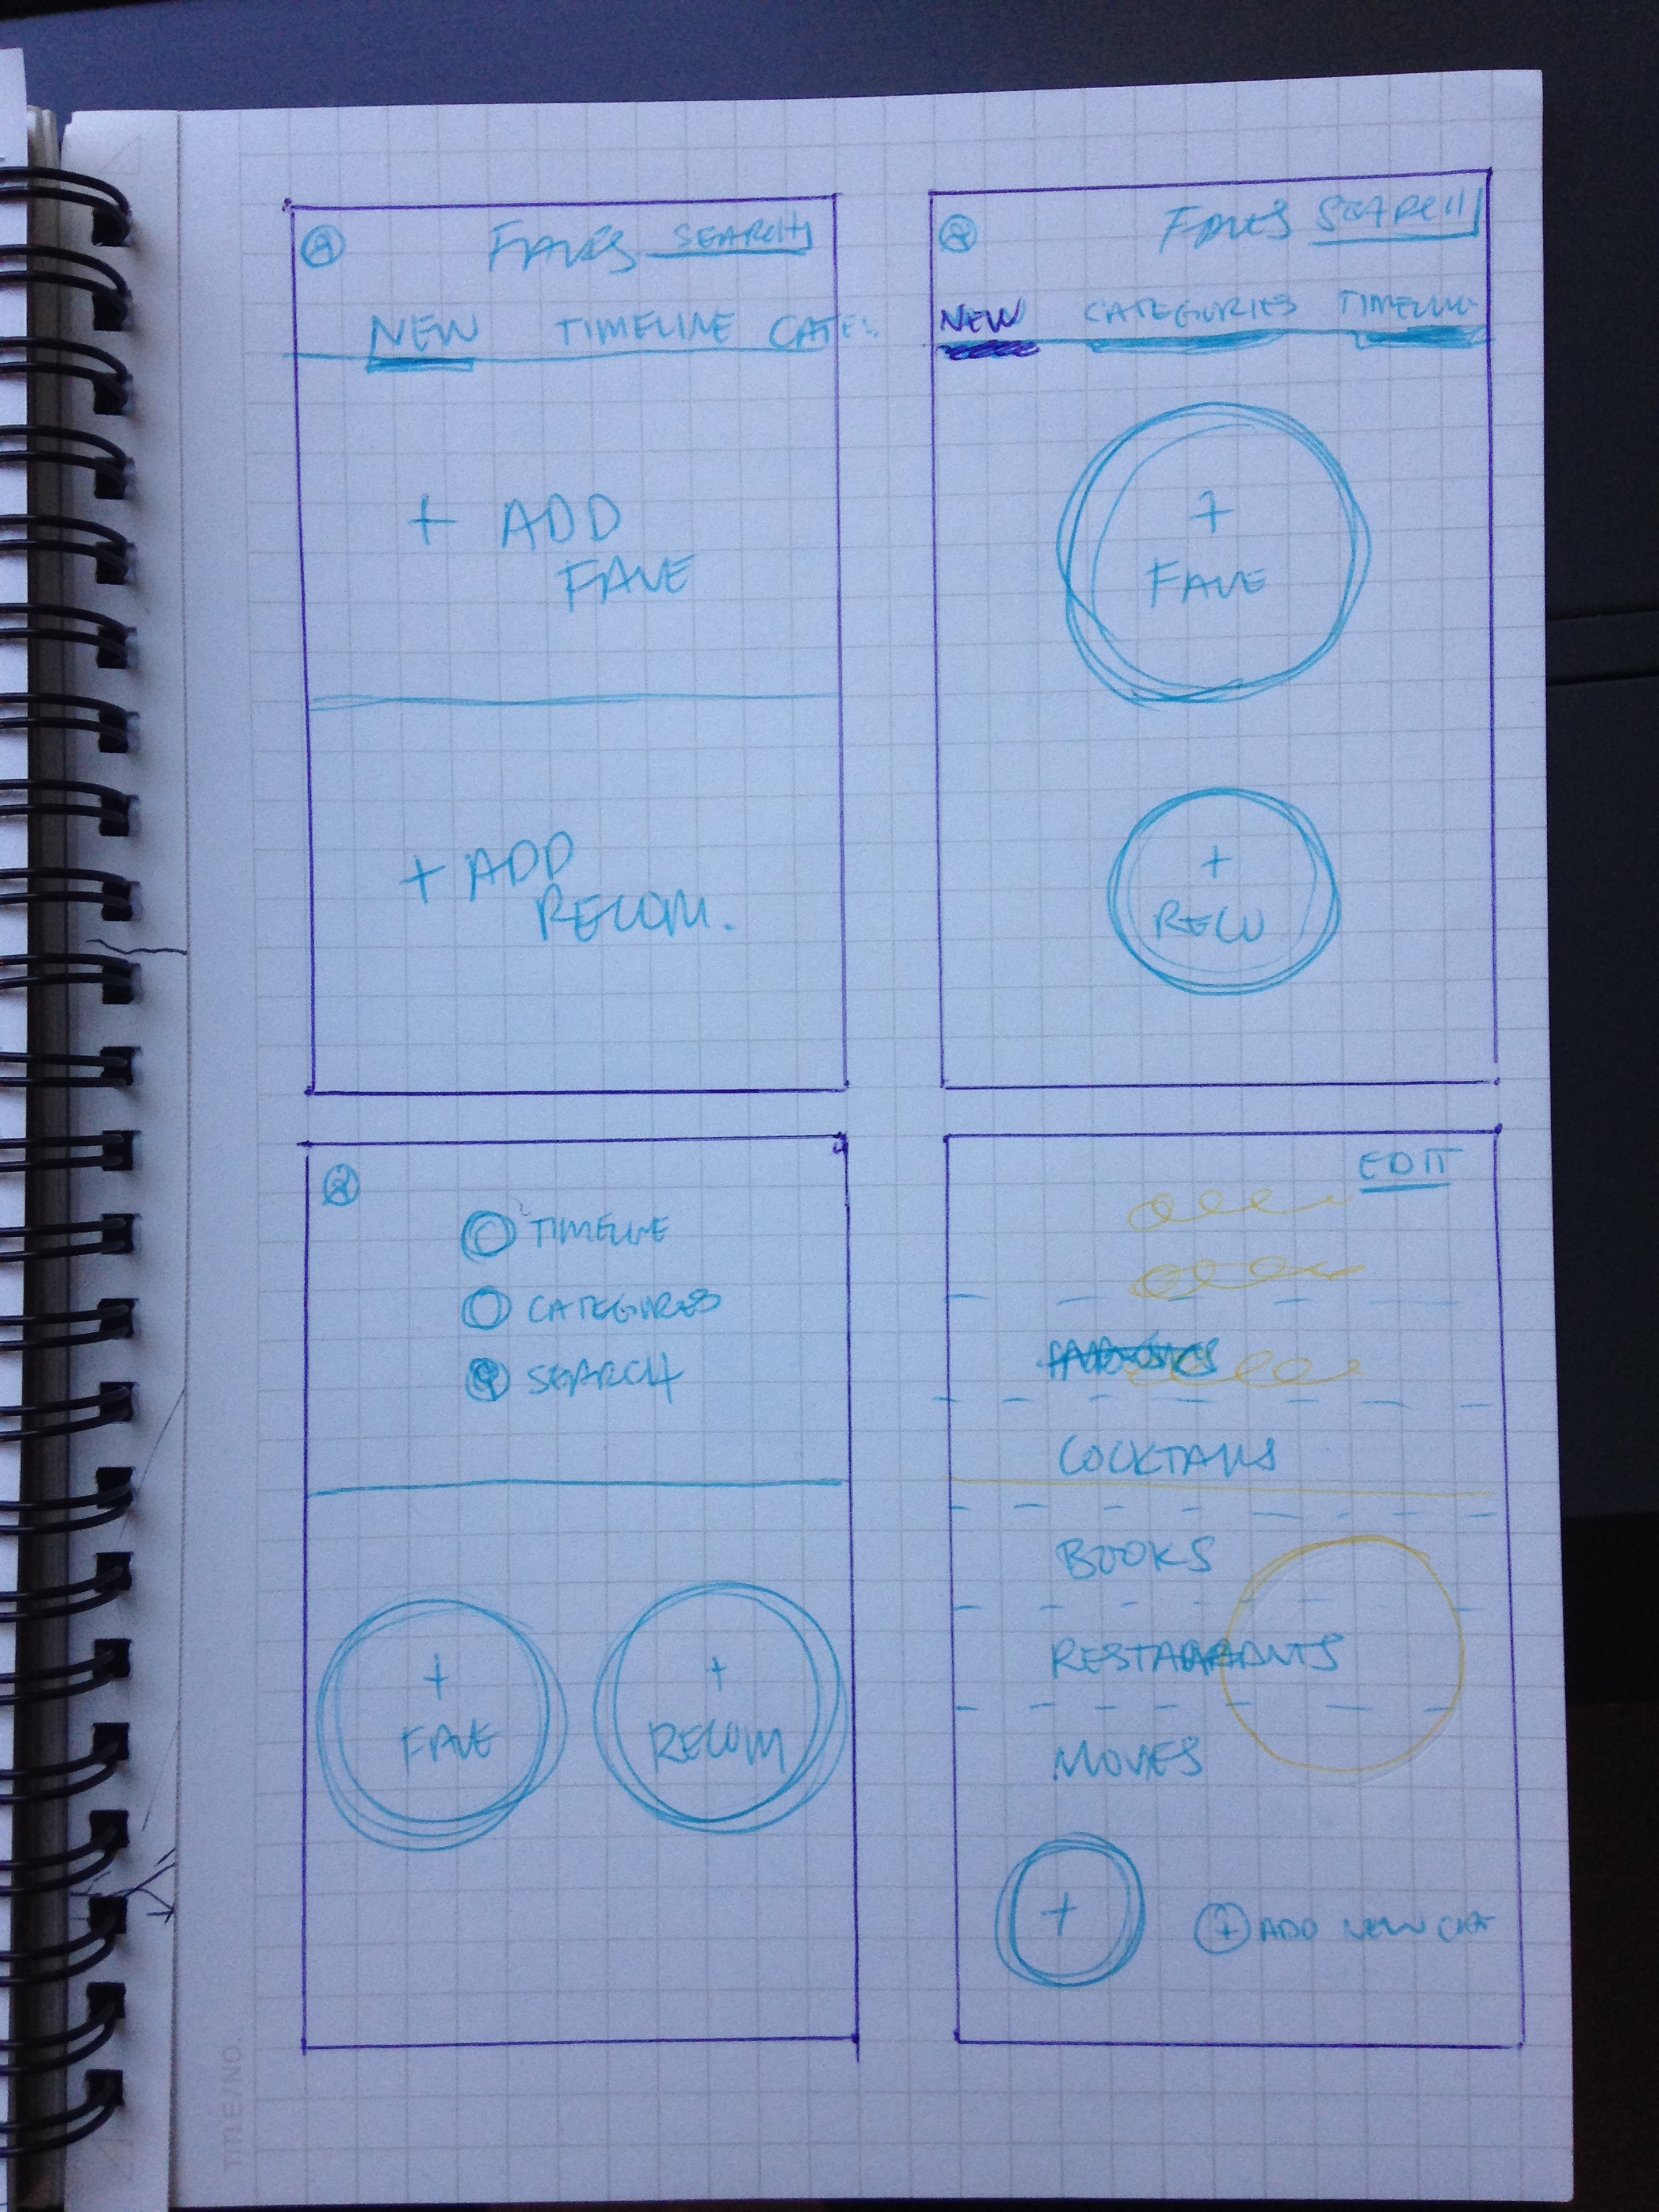 FAVES SEARCH
NEW TIMELINE CATE..
+ ADD
FAVE
+ ADD
RECOM.
FAVES SEARCH
NEW CATEGORIES TIMELINE
+
FAVE
+
RECO
TIMELINE
CATEGORIES
SEARCH
+
FAVE
+
RECOM
EDIT
COCKTAILS
BOOKS
RESTAURANTS
MOVIES
+
+ ADD NEW CAT
TITLE/NO.